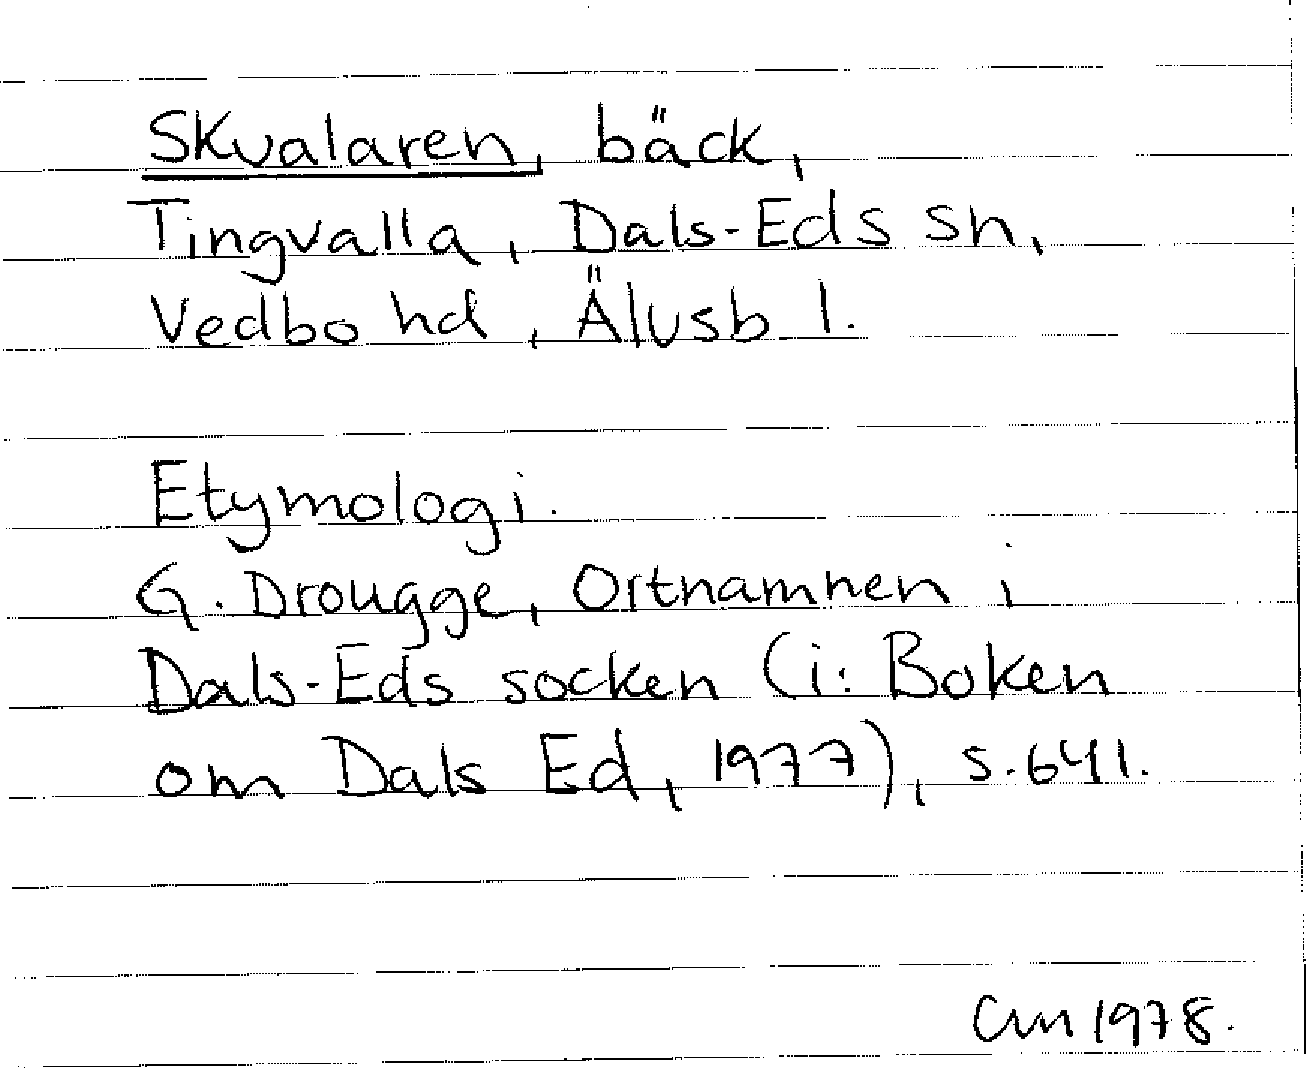 Skvalaren, bäck,
Tingvalla, Dals-Eds sn,
Vedbo hd, Älvsb l.
Etymologi.
G. Drougge, Ortnamnen i
Dals-Eds socken (i: Boken
om Dals Ed, 1977), s. 641.
1978.